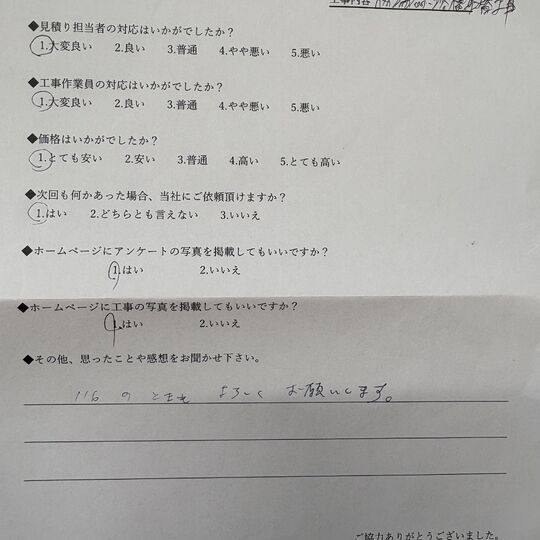 工事内容
◆見積り担当者の対応はいかがでしたか？
1.大変良い 2.良い 3.普通 4.やや悪い 5.悪い
◆工事作業員の対応はいかがでしたか？
1.大変良い 2.良い 3.普通 4.やや悪い 5.悪い
◆価格はいかがでしたか？
1.とても安い 2.安い 3.普通 4.高い 5.とても高い
◆次回も何かあった場合、当社にご依頼頂けますか？
1.はい 2.どちらとも言えない 3.いいえ
◆ホームページにアンケートの写真を掲載してもいいですか？
1.はい 2.いいえ
◆ホームページに工事の写真を掲載してもいいですか？
1.はい 2.いいえ
◆その他、思ったことや感想をお聞かせ下さい。
116 のときも よろしく お願いします。
ご協力ありがとうございました。